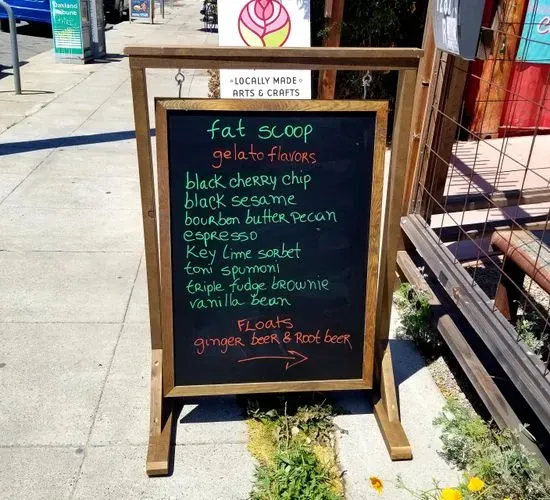 Oakland
Tribune
LOCALLY MADE
ARTS & CRAFTS
fat scoop
gelato flavors
black cherry chip
black sesame
bourbon butter pecan
espresso
Key lime sorbet
toni spumoni
triple fudge brownie
vanilla bean
Floats
ginger beer & Root beer